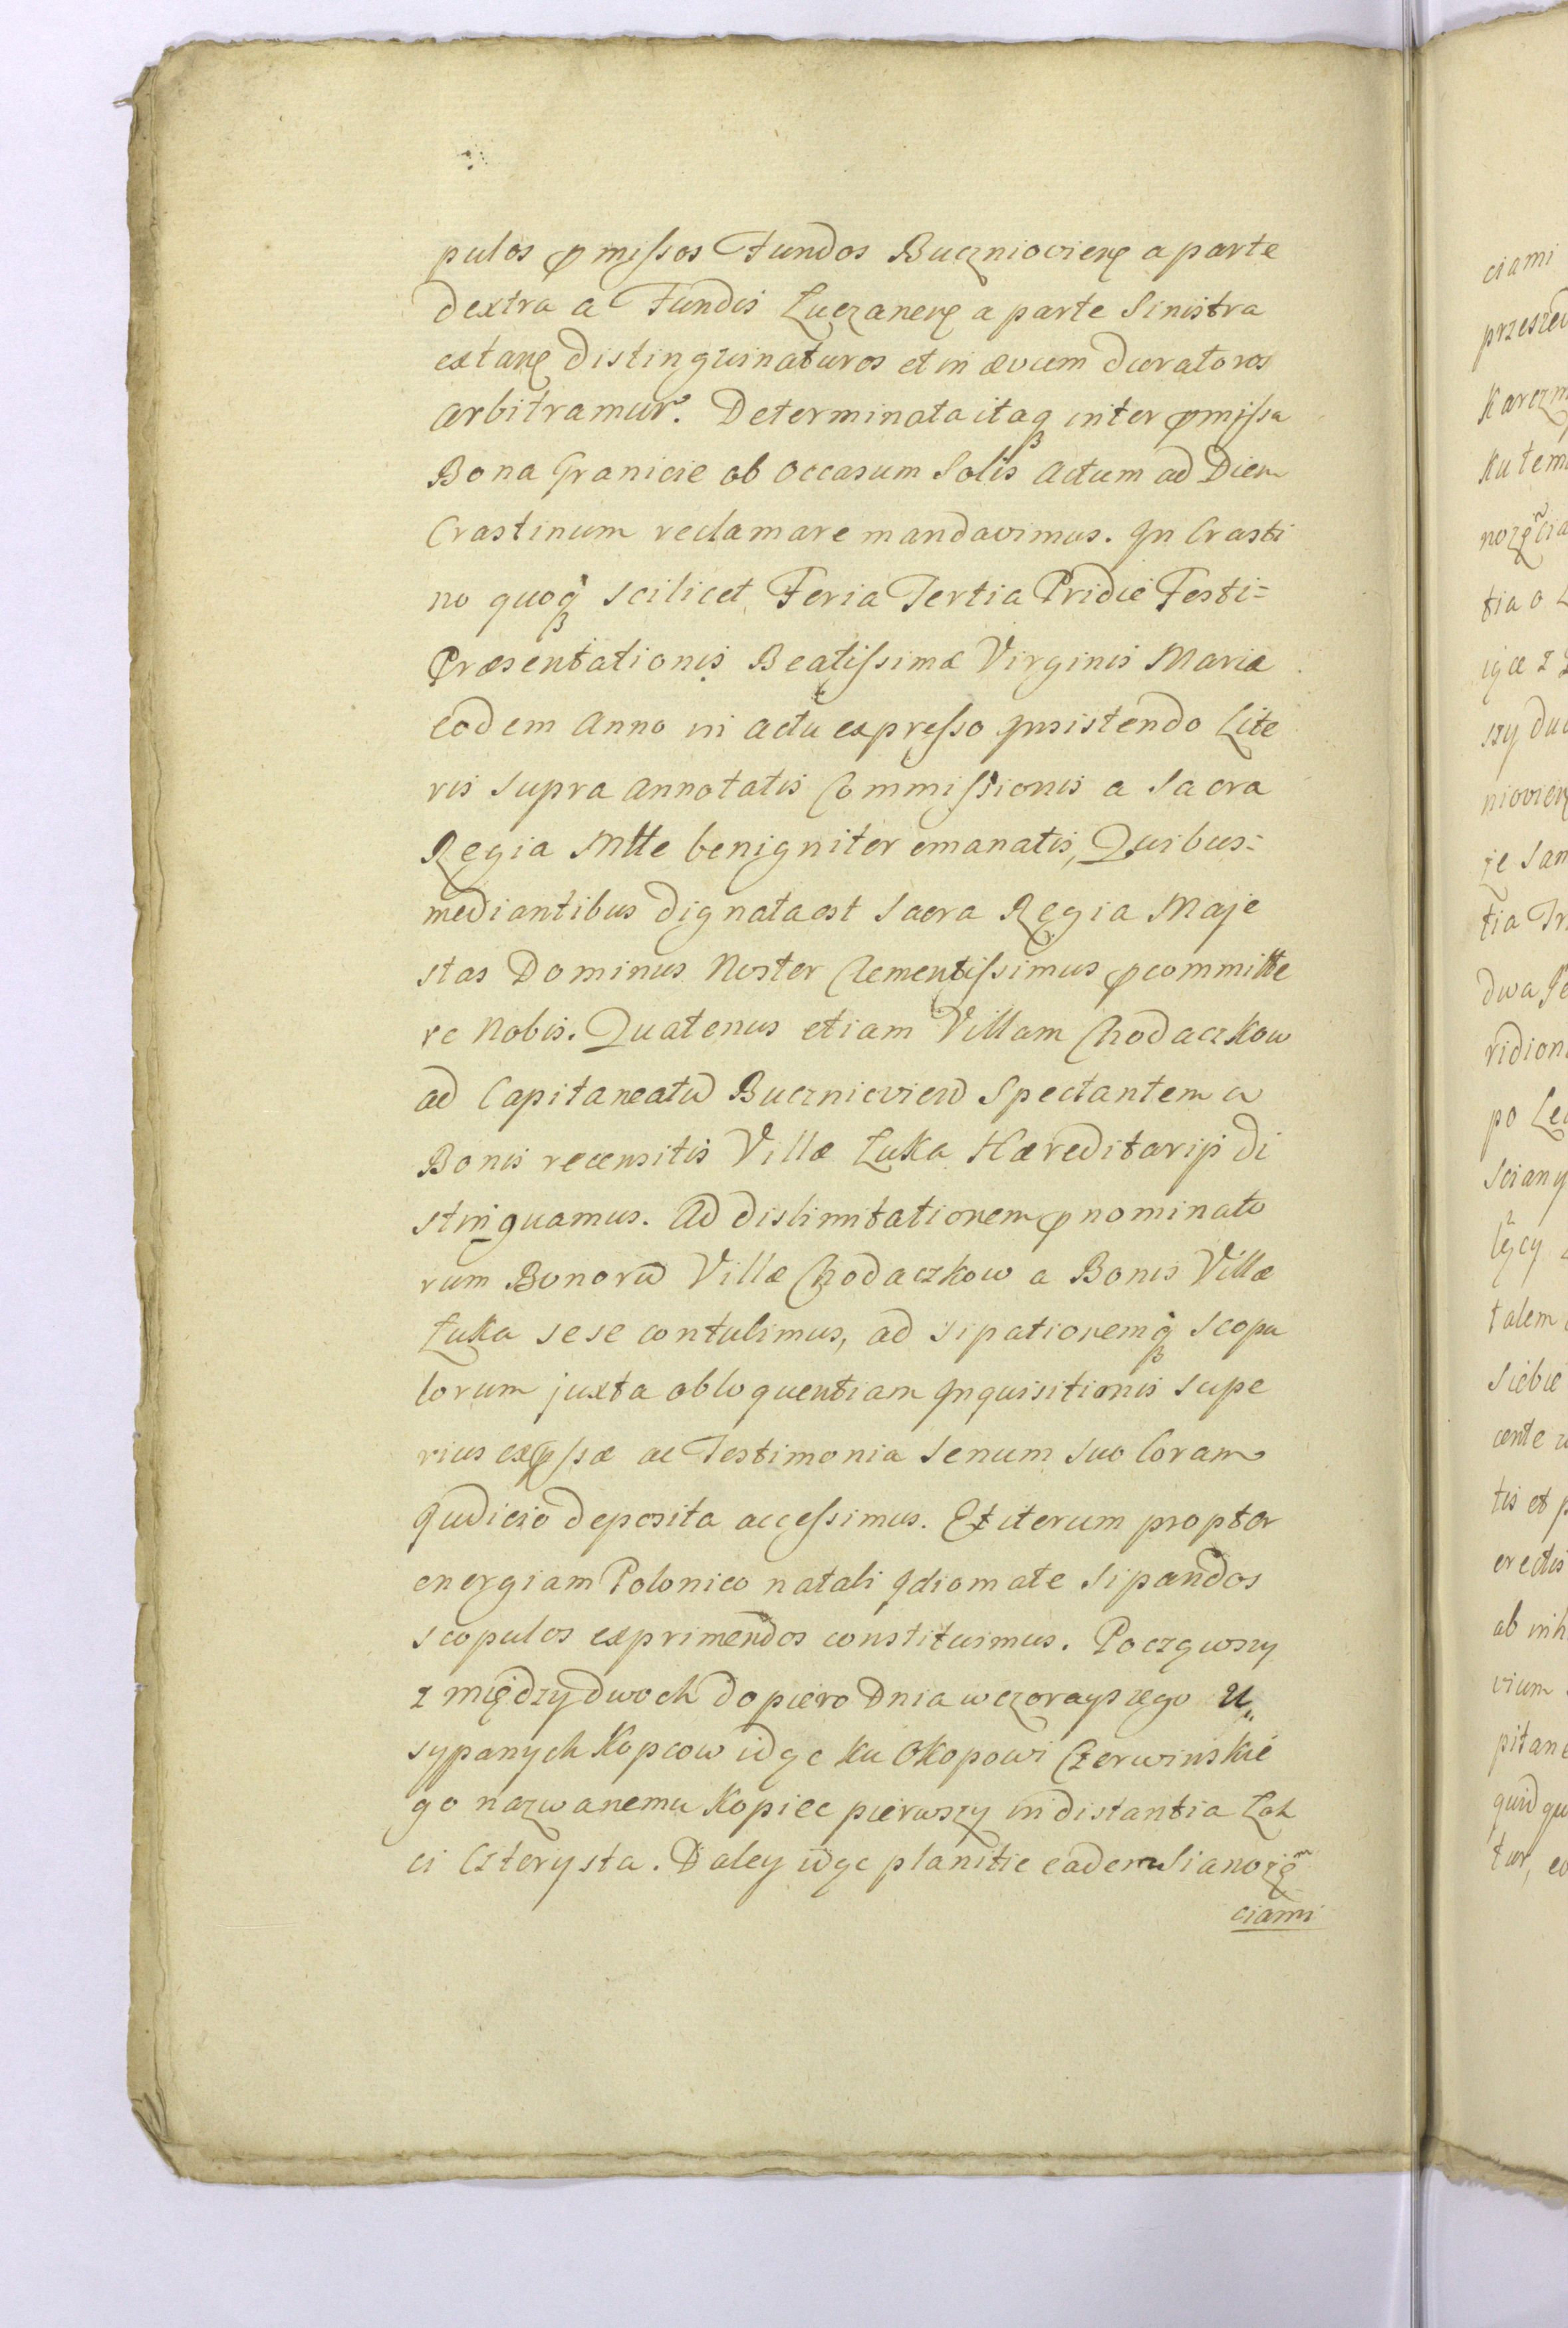 pulos ꝓmissos Fundos Buczniovien̄ a parte
dextra a Fundis Łuczanen̄ a parte Sinistra
extan̄ distinguinaturos et in ævum duraturos
arbitramur. Determinata itaqꝫ inter ꝓmissa
Bona Granicie ob occasum Solis Actum ad Diem
Crastinum reclamare mandavimus. In Crasti
no quoqꝫ scilicet Feria Tertia Pridie Festi=
Præsentationis Beatissimæ Virginis Mariæ
eodem Anno in actu expresso Insistendo Lite
ris supra annotatis Commissionis a Sacra
Regia Mtte benigniter emanatis, Quibus=
mediantibus dignata est Sacra Regia Maje
stas Dominus Noster Clementissimus ꝓcommitte
re Nobis. Quatenus etiam Villam Chodaczkow
ad Capitaneatū Buczniovien̄ Spectantem a
Bonis recensitis Villæ Łuka Hæreditarijs di
stinguamus. Ad dislimitationem ꝓnominato
rum Bonorū Villæ Chodaczkow a Bonis Villæ
Łuka sese contulimus, ad sipationemqꝫ scopu
lorum juxta obloquentiam Inquisitionis supe
rius exꝓssæ ac Testimonia Senum suo Coram
Iudicio deposita accessimus. Et iterum propter
energiam Polonico natali Idiomate sipandos
scopulos exprimendos constituimus. Począwszy
z między dwoch dopiero Dnia wczorayszego U„
sypanych Kopcow idąc ku Okopowi Czerwinskie
go nazwanemu Kopiec pierwszy in distantia Łok
ci Czterysta. Daley idąc planitie eadem Sianożę
ciami
ciami
Karczm
ku tem
tia o
szy
je
tia
dwa
po
talem
Siebie
tis et
ab
vium
tur,